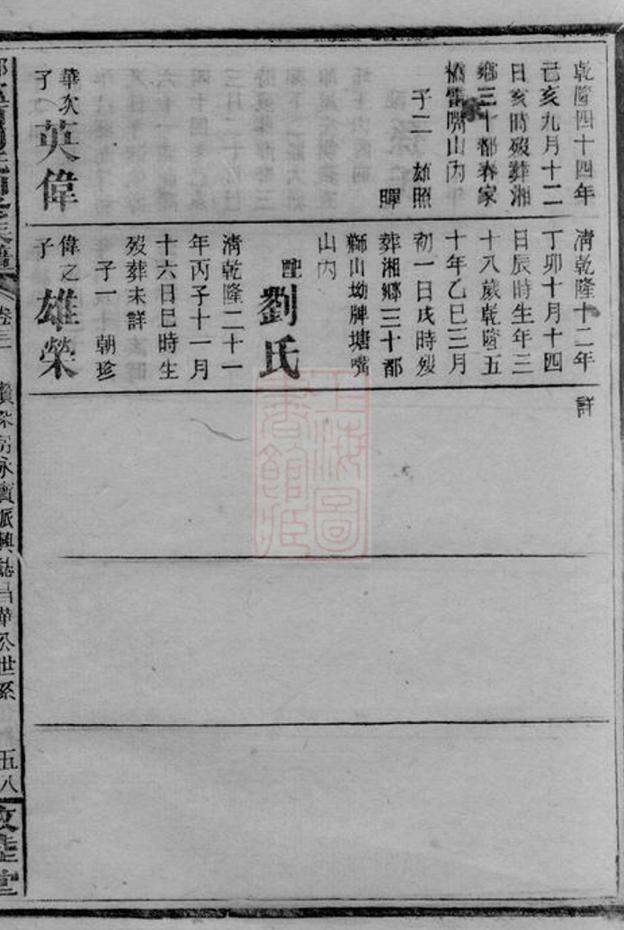 乾隆四十四年
己亥九月十二
日亥時歿葬湘
鄉三十都春家
橋雷嘴山內
子二　雄照
暉
華次子英偉
清乾隆十二年
丁卯十月十四
日辰時生年三
十八歲乾隆五
十年乙巳三月
初一日戌時歿
葬湘鄉三十都
獅山坳牌塘嘴
山內
配劉氏
清乾隆二十一
年丙子十一月
十六日巳時生
歿葬未詳
子一　朝珍
偉之子雄榮
詳
卷三
永寶派興誌昌華公世系
五八
敦睦堂
上海圖書館藏